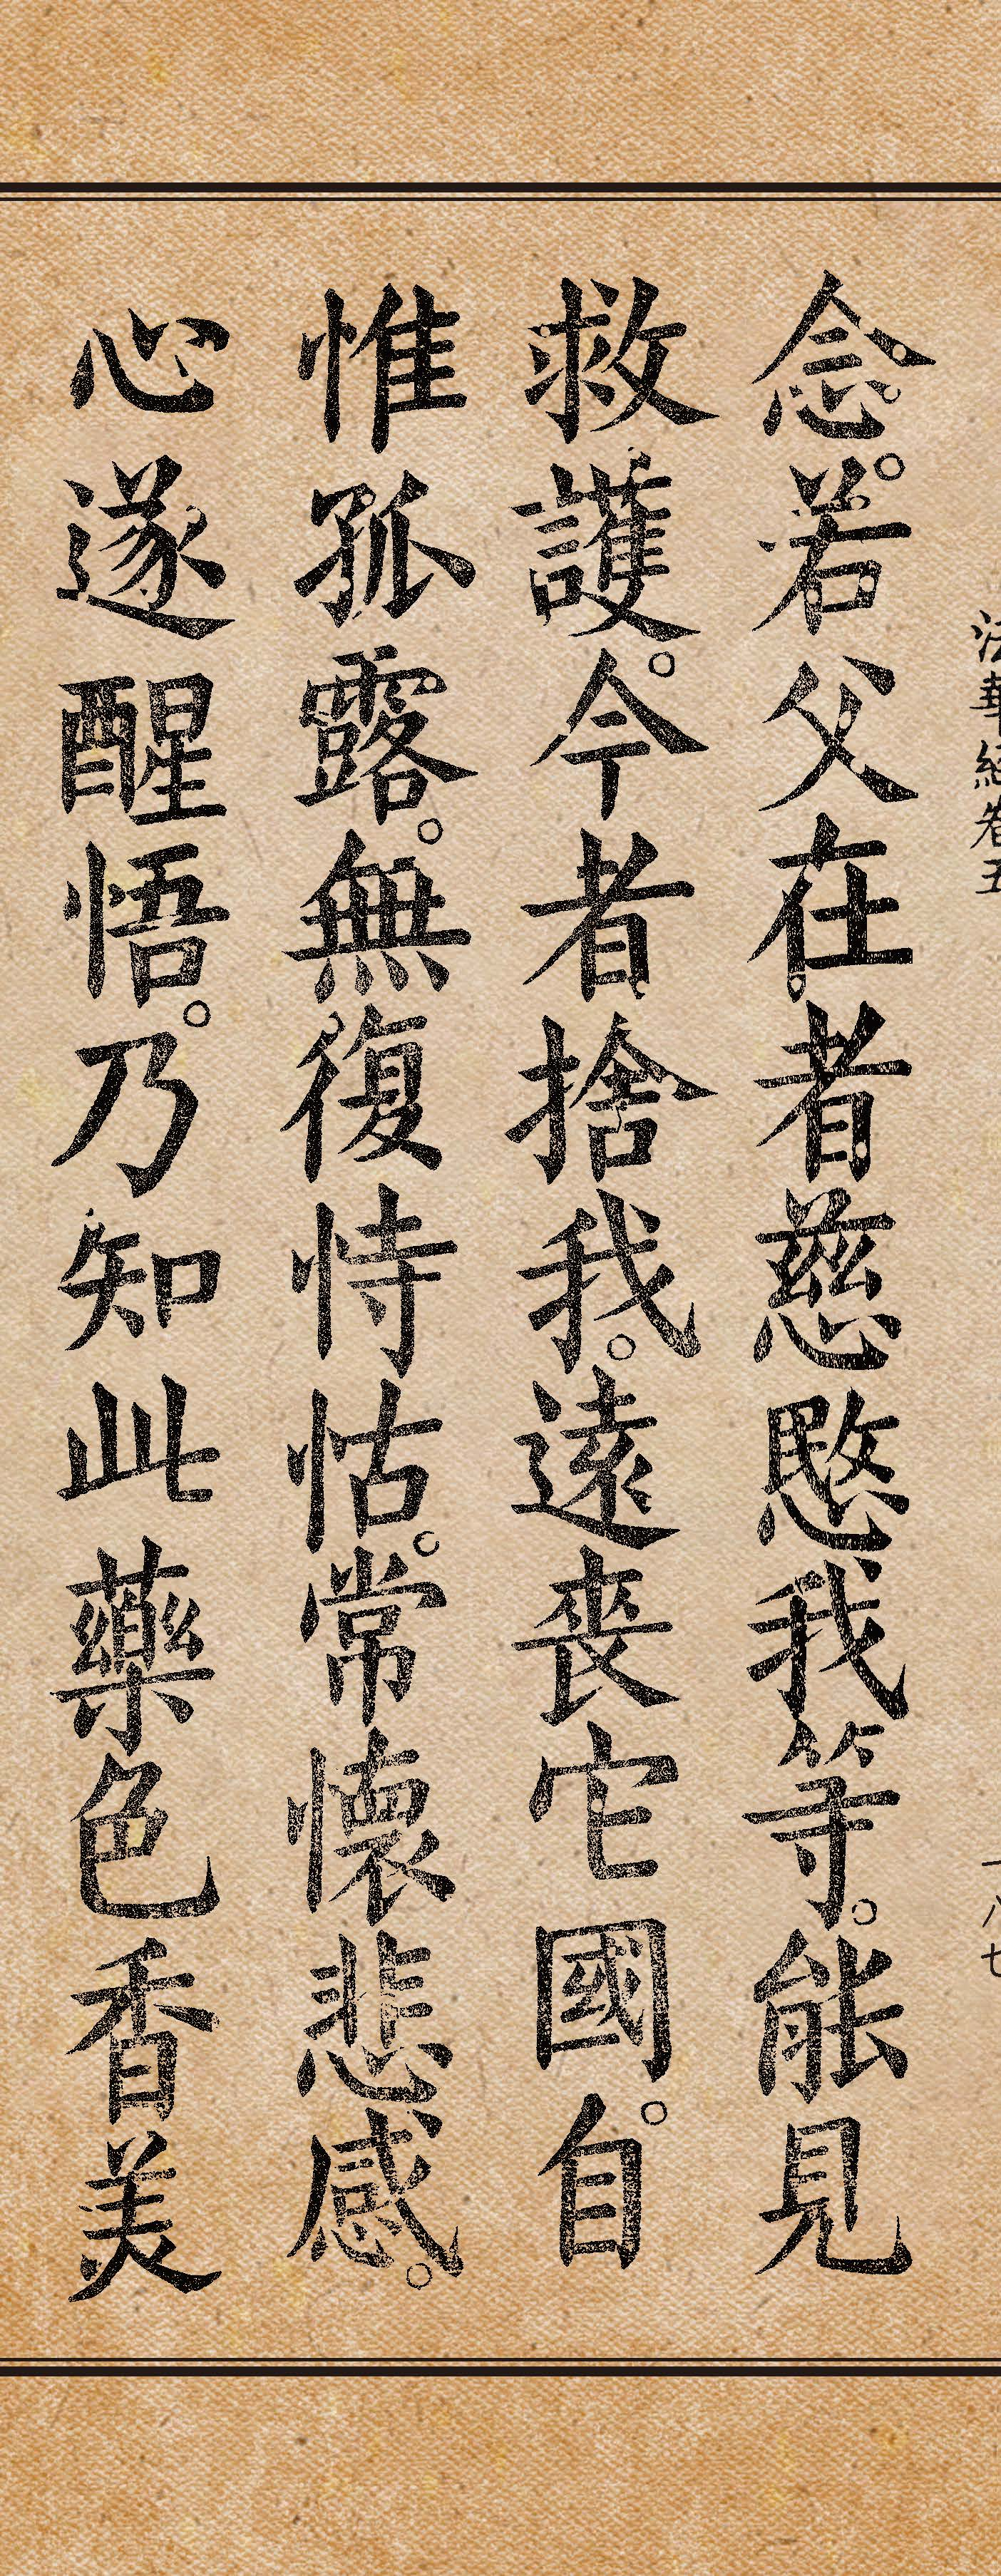 法華經卷五
一八七
念。若父在者慈愍我等。能見
救護。今者捨我。遠喪它國。自
惟孤露。無復恃怙。常懷悲感。
心遂醒悟。乃知此藥色香美